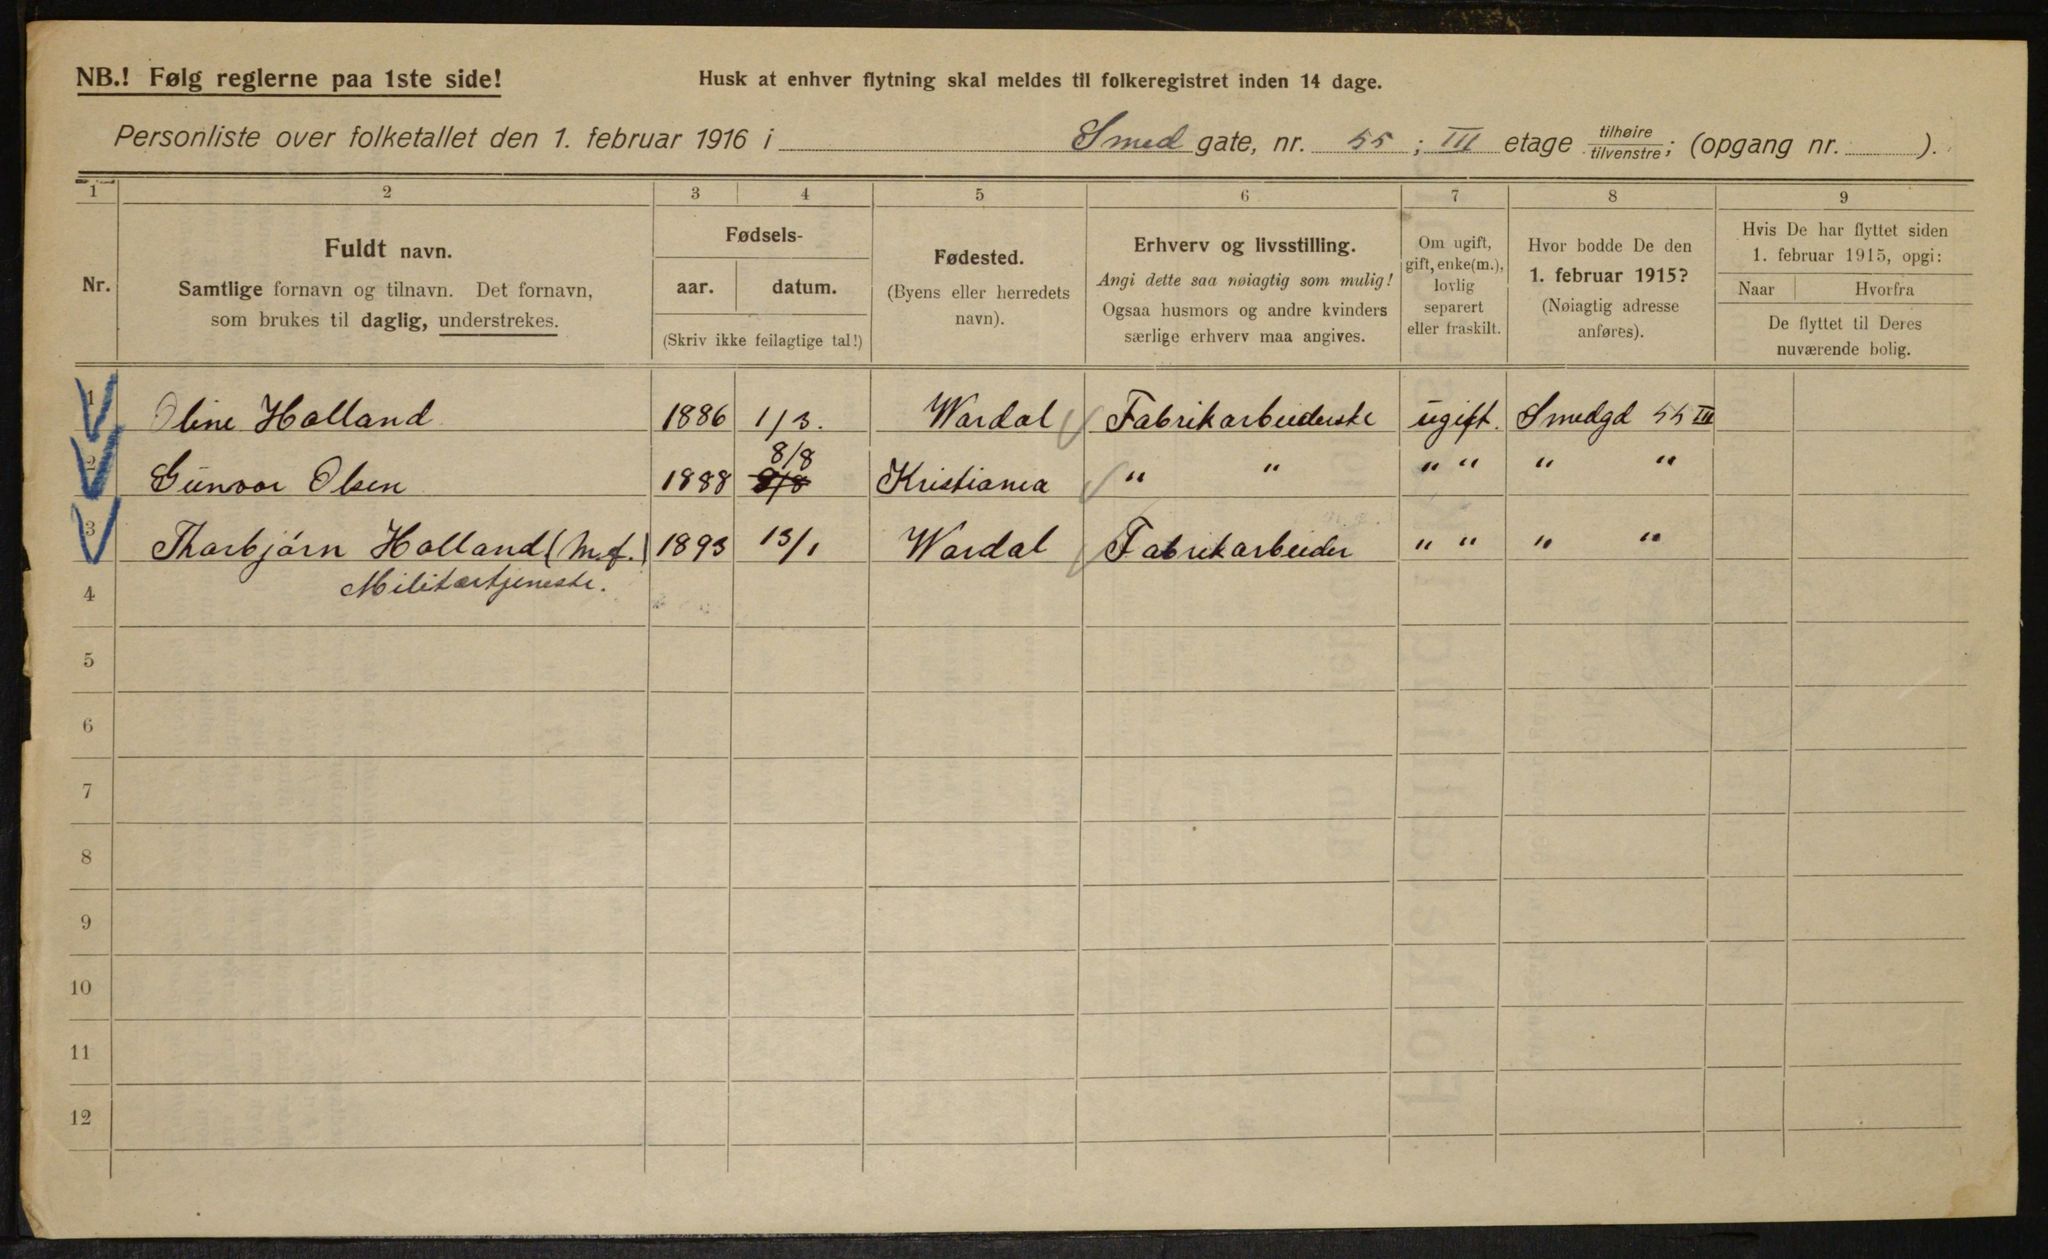 NB.! Følg reglerne paa 1ste side!
Husk at enhver flytning skal meldes til folkeregistret inden 14 dage.
Personliste over folketallet den 1. februar 1916 i Smed gate, nr. 55; III etage tilhøire/tilvenstre; (opgang nr. ).
1 2 3 4 5 6 7 8 9
Nr.
Fuldt navn.
Samtlige fornavn og tilnavn. Det fornavn,
som brukes til daglig, understrekes.
Fødsels-
aar. datum.
(Skriv ikke feilagtige tal!)
Fødested.
(Byens eller herredets
navn).
Erhverv og livsstilling.
Angi dette saa nøiagtig som mulig!
Ogsaa husmors og andre kvinders
særlige erhverv maa angives.
Om ugift,
gift, enke(m.),
lovlig
separert
eller fraskilt.
Hvor bodde De den
1. februar 1915?
(Nøiagtig adresse
anføres).
Hvis De har flyttet siden
1. februar 1915, opgi:
Naar Hvorfra
De flyttet til Deres
nuværende bolig.
1 Oline Holland 1886 1/3. Wardal Fabrikarbeiderske ugift. Smedgd 55 III
8/8
2 Gunvor Olsen 1888 Kristiania " " " " " "
3 Thorbjørn Holland (m.f.) 1893 13/1 Wardal Fabrikarbeider " " " "
Militærtjeneste.
4
5
6
7
8
9
10
11
12